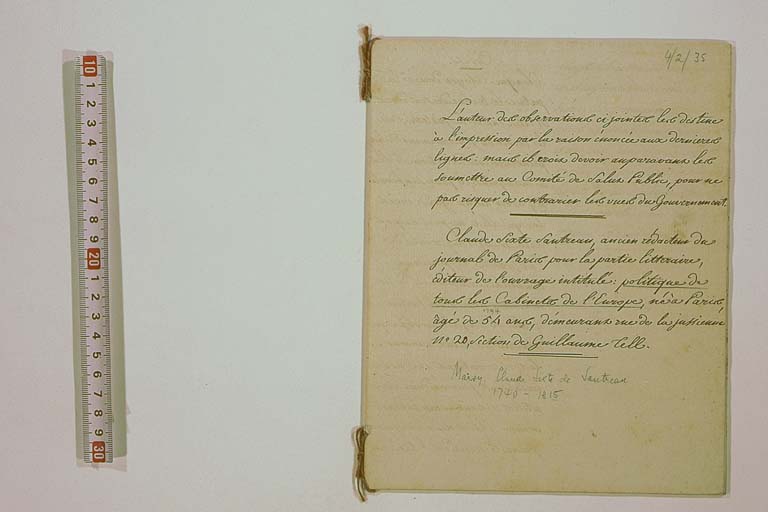 4/2/35
L'auteur des observations ci jointes les destine
à l'impression par la raison énoncée aux dernieres
lignes: mais il croit devoir auparavant les
soumettre au Comité de Salut Public, pour ne
pas risquer de contrarier les vues du Gouvernement.
Claude Sixte Sautreau, ancien rédacteur du
journal de Paris pour la partie litteraire,
éditeur de l'ouvrage intitulé: politique de
tous les Cabinets de l'Europe, né à Paris,
âgé de 54 ans, demeurant rue de la jussienne
Nº 20, Section de Guillaume Tell.
Marsy, Claude Sixte de Sautreau
1740 - 1815
10 1 2 3 4 5 6 7 8 9 20 1 2 3 4 5 6 7 8 9 30